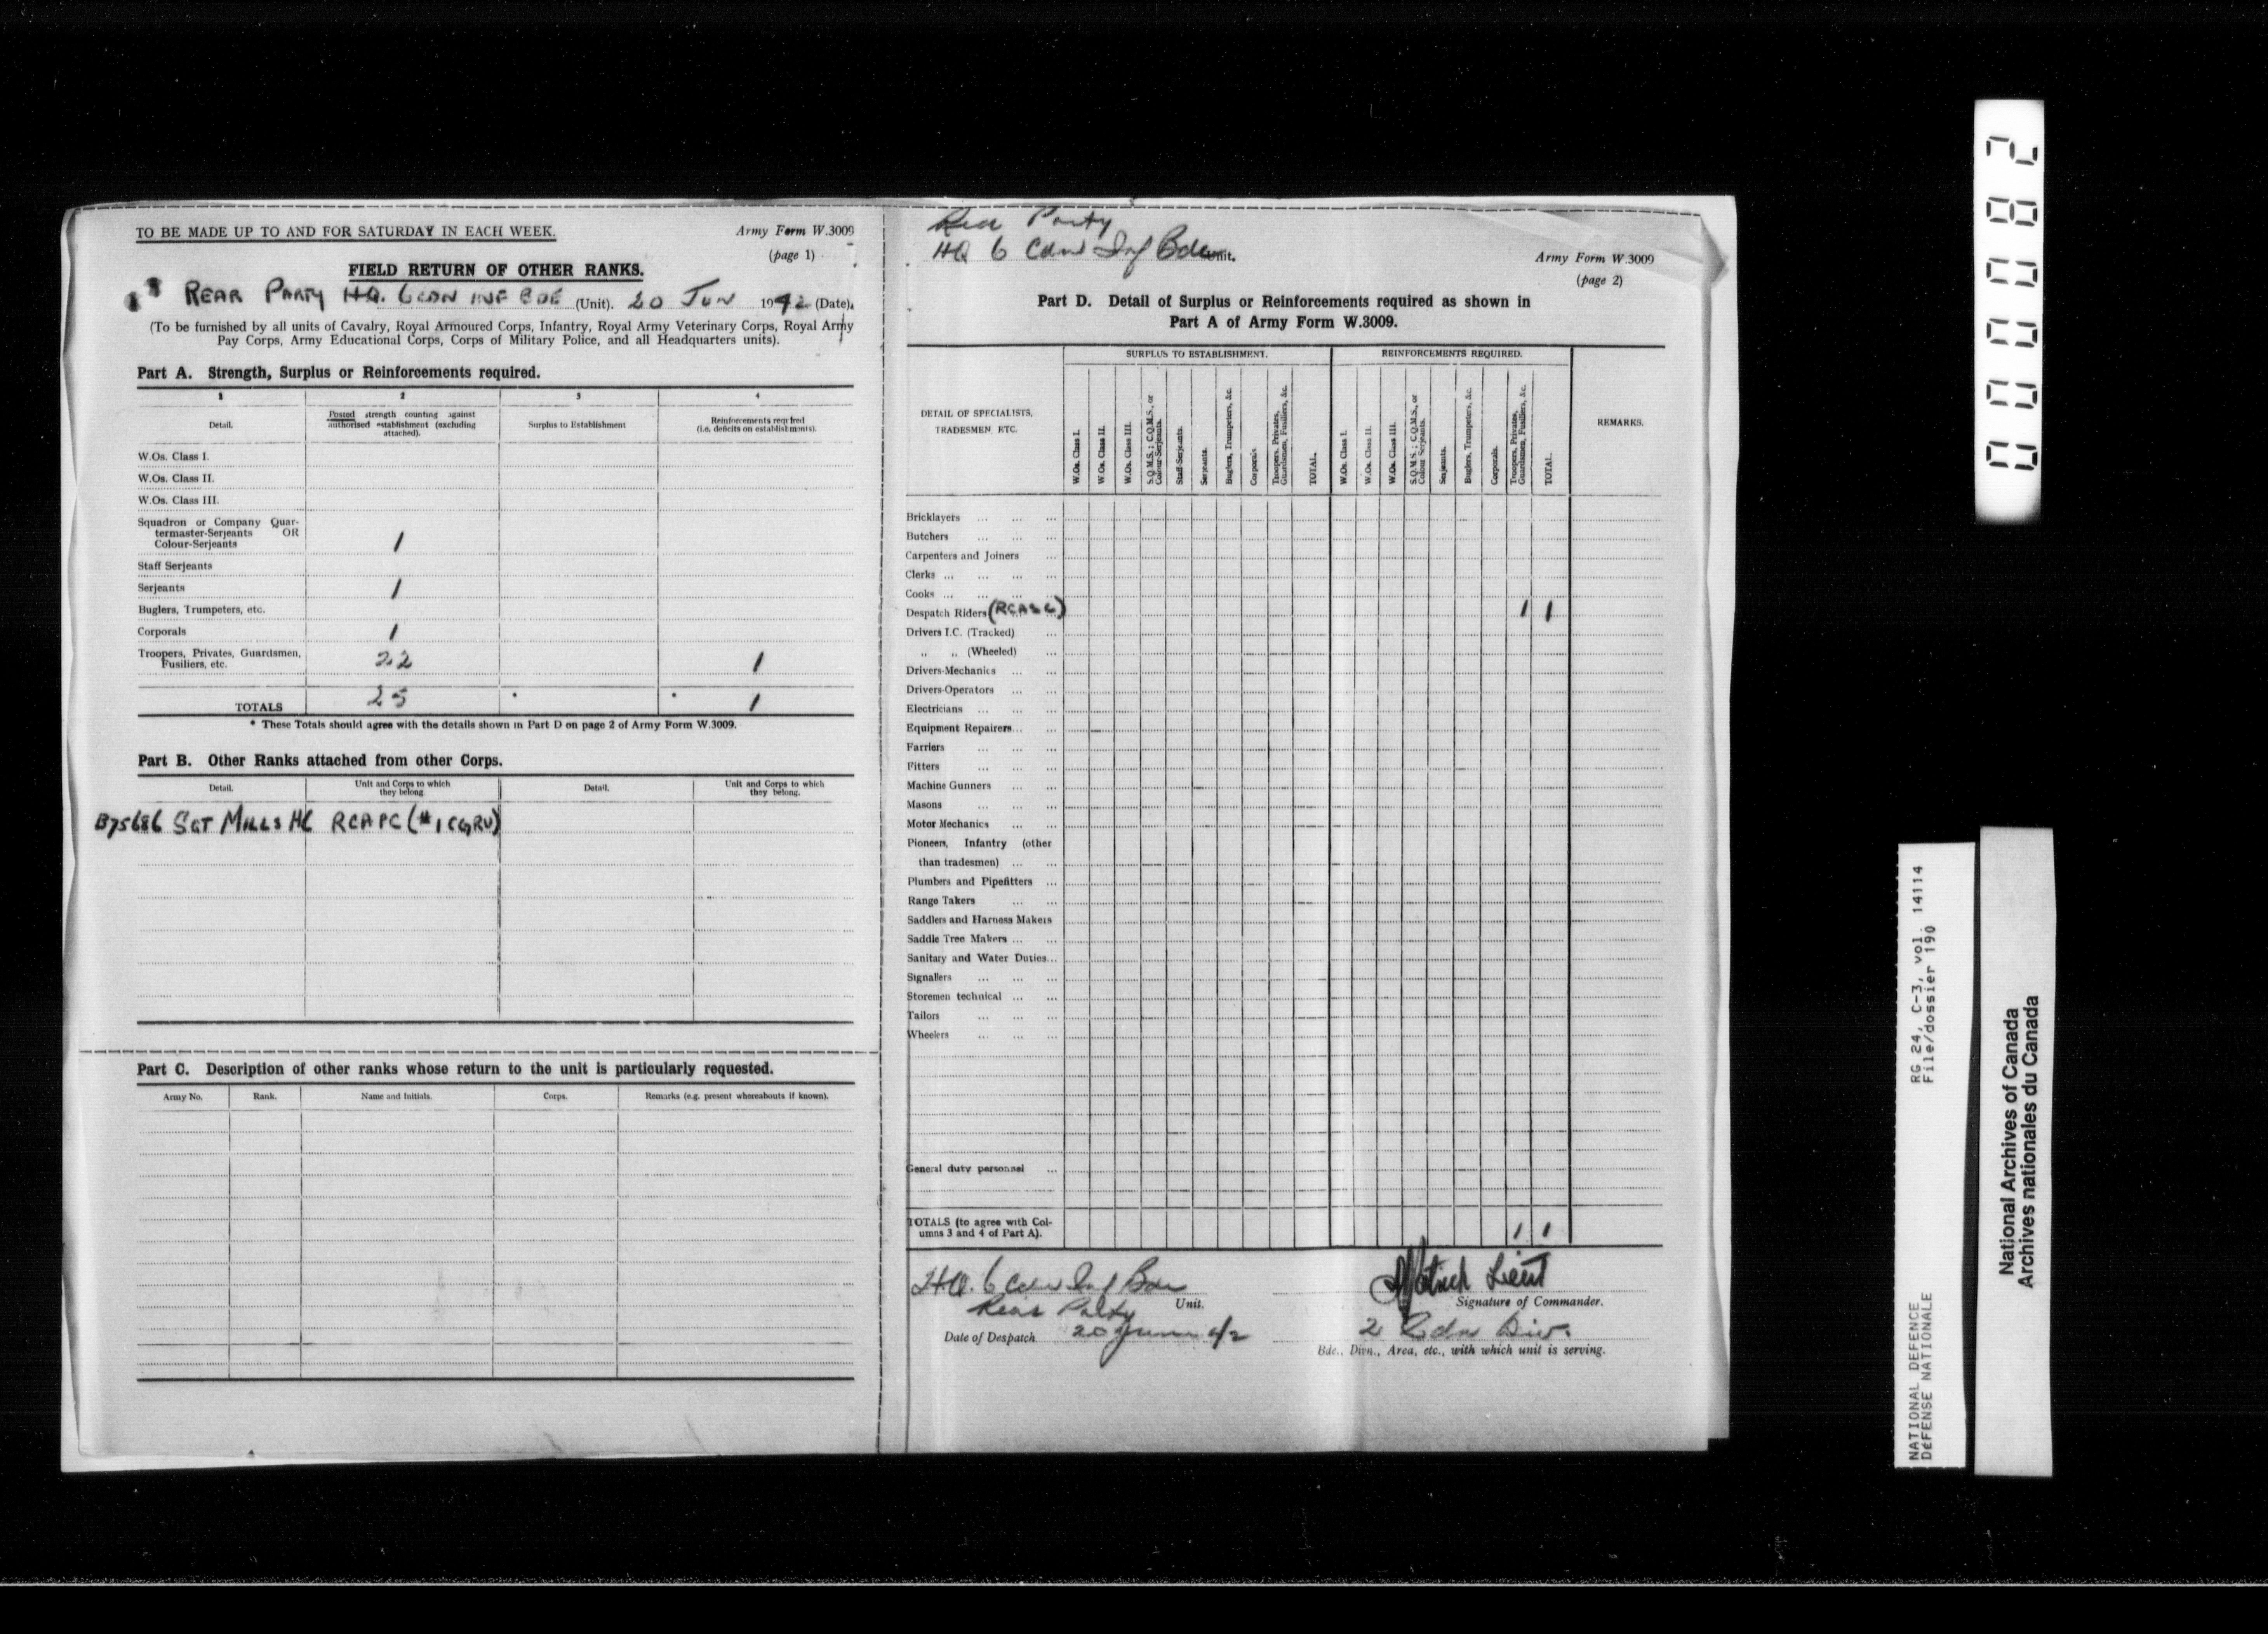 TO BE MADE UP TO AND FOR SATURDAY IN EACH WEEK.
Army Form W.3009
(page 1)
FIELD RETURN OF OTHER RANKS.
REAR PARTY HQ. 6 CDN INF BDE (Unit). 20 JUN 1942 (Date).
(To be furnished by all units of Cavalry, Royal Armoured Corps, Infantry, Royal Army Veterinary Corps, Royal Army
Pay Corps, Army Educational Corps, Corps of Military Police, and all Headquarters units).
Part A. Strength, Surplus or Reinforcements required.
1 2 3 4
Detail.
Posted strength counting against
authorised establishment (excluding
attached).
Surplus to Establishment
Reinforcements required
(i.e. deficits on establishments).
W.Os. Class I.
W.Os. Class II.
W.Os. Class III.
Squadron or Company Quar-
termaster-Serjeants OR
Colour-Serjeants 1
Staff Serjeants
Serjeants 1
Buglers, Trumpeters, etc.
Corporals 1
Troopers, Privates, Guardsmen,
Fusiliers, etc. 22 1
TOTALS 25 1
* These Totals should agree with the details shown in Part D on page 2 of Army Form W.3009.
Part B. Other Ranks attached from other Corps.
Detail.
Unit and Corps to which
they belong.
Detail.
Unit and Corps to which
they belong.
B75686 SGT MILLS HC RCAPC (#1 CGRU)
Part C. Description of other ranks whose return to the unit is particularly requested.
Army No. Rank. Name and Initials. Corps. Remarks (e.g. present whereabouts if known).
Rear Party
HQ 6 Cdn Inf Bde Unit.
Army Form W.3009
(page 2)
Part D. Detail of Surplus or Reinforcements required as shown in
Part A of Army Form W.3009.
DETAIL OF SPECIALISTS,
TRADESMEN ETC.
SURPLUS TO ESTABLISHMENT.
W.Os. Class I.
W.Os. Class II.
W.Os. Class III.
S.Q.M.S.; C.Q.M.S., or
Colour-Serjeants.
Staff-Serjeants.
Serjeants.
Buglers, Trumpeters, &c.
Corporals.
Troopers, Privates,
Guardsmen, Fusiliers, &c.
TOTAL.
REINFORCEMENTS REQUIRED.
W.Os. Class I.
W.Os. Class II.
W.Os. Class III.
S.Q.M.S.; C.Q.M.S., or
Colour Serjeants.
Serjeants.
Buglers, Trumpeters, &c.
Corporals.
Troopers, Privates,
Guardsmen, Fusiliers, &c.
TOTAL.
REMARKS.
Bricklayers ... ... ...
Butchers ... ... ...
Carpenters and Joiners ...
Clerks ... ... ... ...
Cooks ... ... ... ...
Despatch Riders (RCASC) 1 1
Drivers I.C. (Tracked) ...
„ „ (Wheeled) ...
Drivers-Mechanics ... ...
Drivers-Operators ... ...
Electricians ... ... ...
Equipment Repairers... ...
Farriers ... ... ...
Fitters ... ... ...
Machine Gunners ... ...
Masons ... ... ...
Motor Mechanics ... ...
Pioneers, Infantry (other
than tradesmen) ... ...
Plumbers and Pipefitters ...
Range Takers ... ...
Saddlers and Harness Makers
Saddle Tree Makers ... ...
Sanitary and Water Duties...
Signallers ... ... ...
Storemen technical ... ...
Tailors ... ... ...
Wheelers ... ... ...
General duty personnel ...
TOTALS (to agree with Col-
umns 3 and 4 of Part A). 1 1
HQ. 6 Cdn Inf Bde
Rear Party Unit.
Date of Despatch 20 June 42
Lieut
Signature of Commander.
2 Cdn Div.
Bde., Divn., Area, etc., with which unit is serving.
000082
RG 24, C-3, vol. 14114
File/dossier 190
NATIONAL DEFENCE
DÉFENSE NATIONALE
National Archives of Canada
Archives nationales du Canada